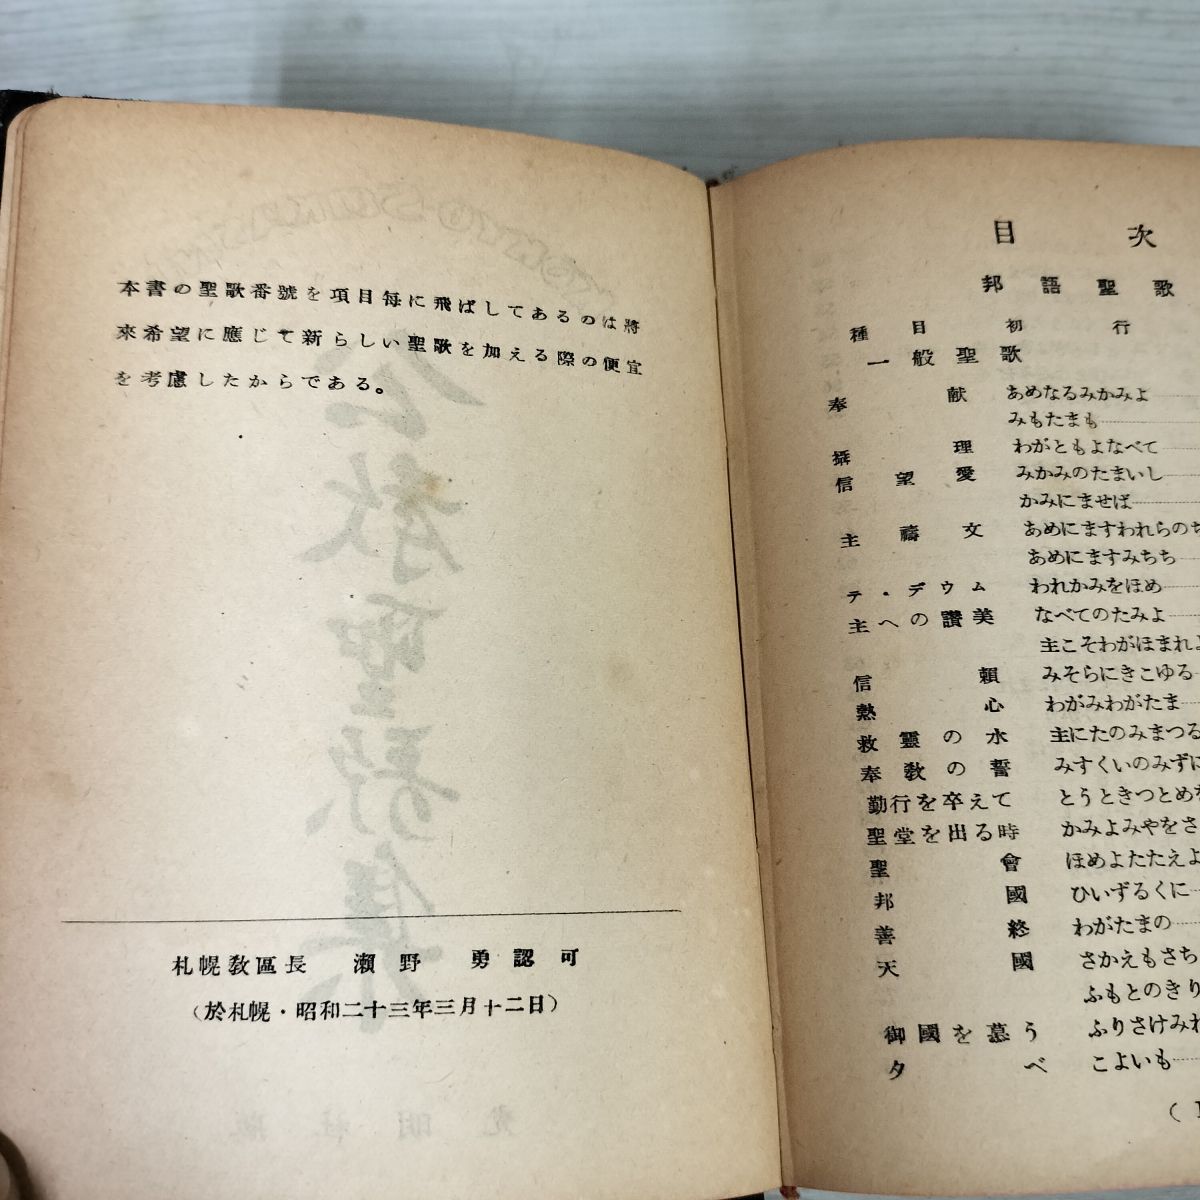 本書の聖歌番號を項目毎に飛ばしてあるのは將
來希望に應じて新らしい聖歌を加える際の便宜
を考慮したからである。
札幌敎區長 瀨野 勇 認可
（於札幌・昭和二十三年三月十二日）
目次
邦語聖歌
種目 初行
一般聖歌
奉獻 あめなるみかみよ
みもたまも
攝理 わがともよなべて
信望愛 みかみのたまいし
かみにませば
主禱文 あめにますわれらのち
あめにますみちち
テ・デウム われかみをほめ
主への讚美 なべてのたみよ
主こそわがほまれよ
信賴 みそらにきこゆる
熱心 わがみわがたま
救靈の水 主にたのみまつる
奉敎の誓 みすくいのみずに
勤行を卒えて とうときつとめを
聖堂を出る時 かみよみやをさ
聖會 ほめよたたえよ
邦國 ひいずるくに
善終 わがたまの
天國 さかえもさち
ふもとのきり
御國を慕う ふりさけみれ
夕べ こよいも